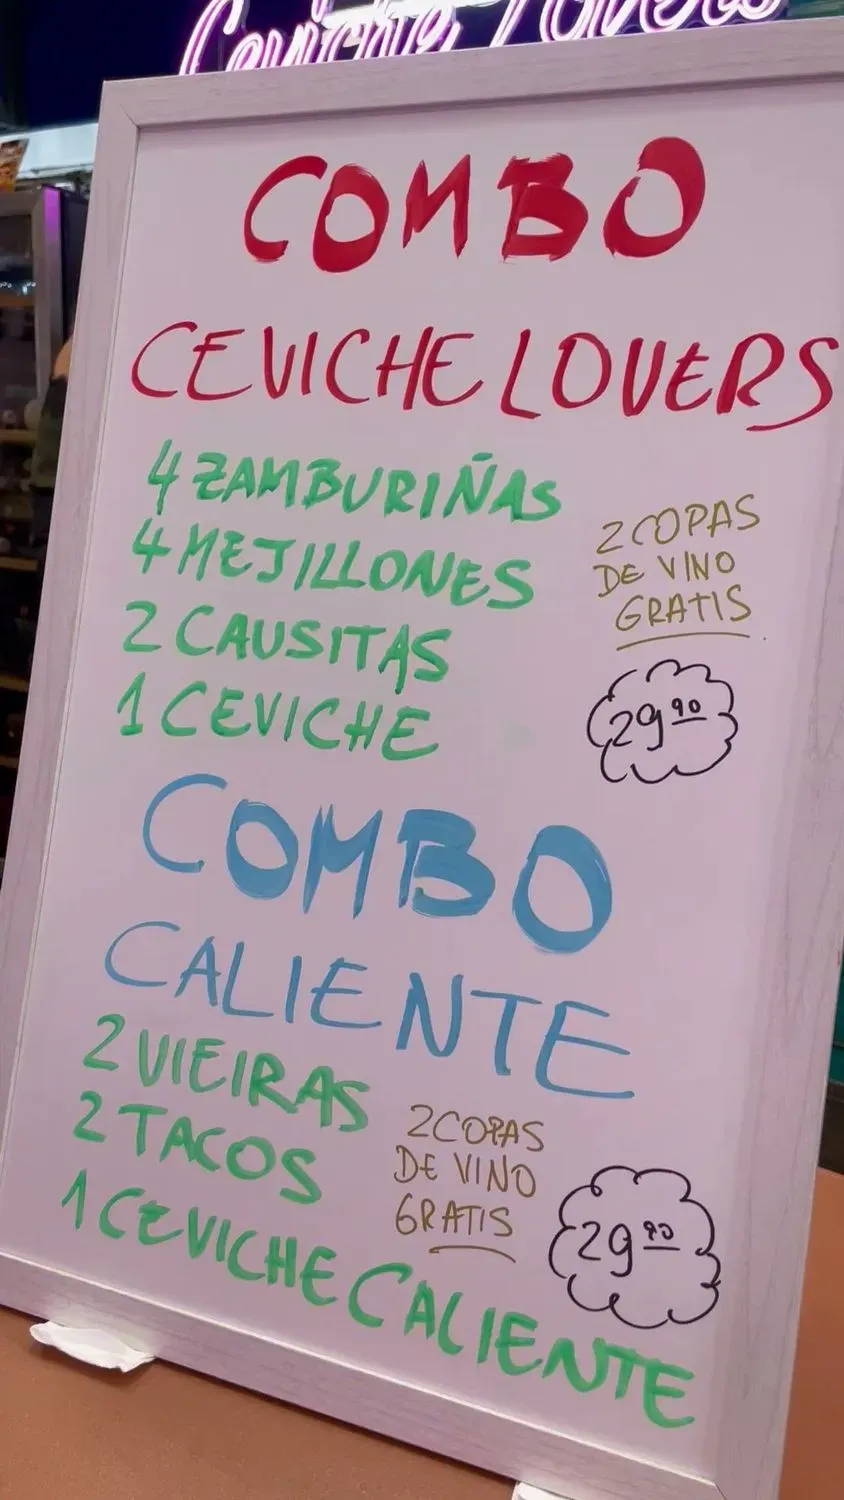 Ceviche Lovers
COMBO
CEVICHE LOVERS
4 ZAMBURIÑAS
4 MEJILLONES
2 CAUSITAS
1 CEVICHE
2 COPAS
DE VINO
GRATIS
29 90
COMBO
CALIENTE
2 VIEIRAS
2 TACOS
1 CEVICHE CALIENTE
2 COPAS
DE VINO
GRATIS
29 90